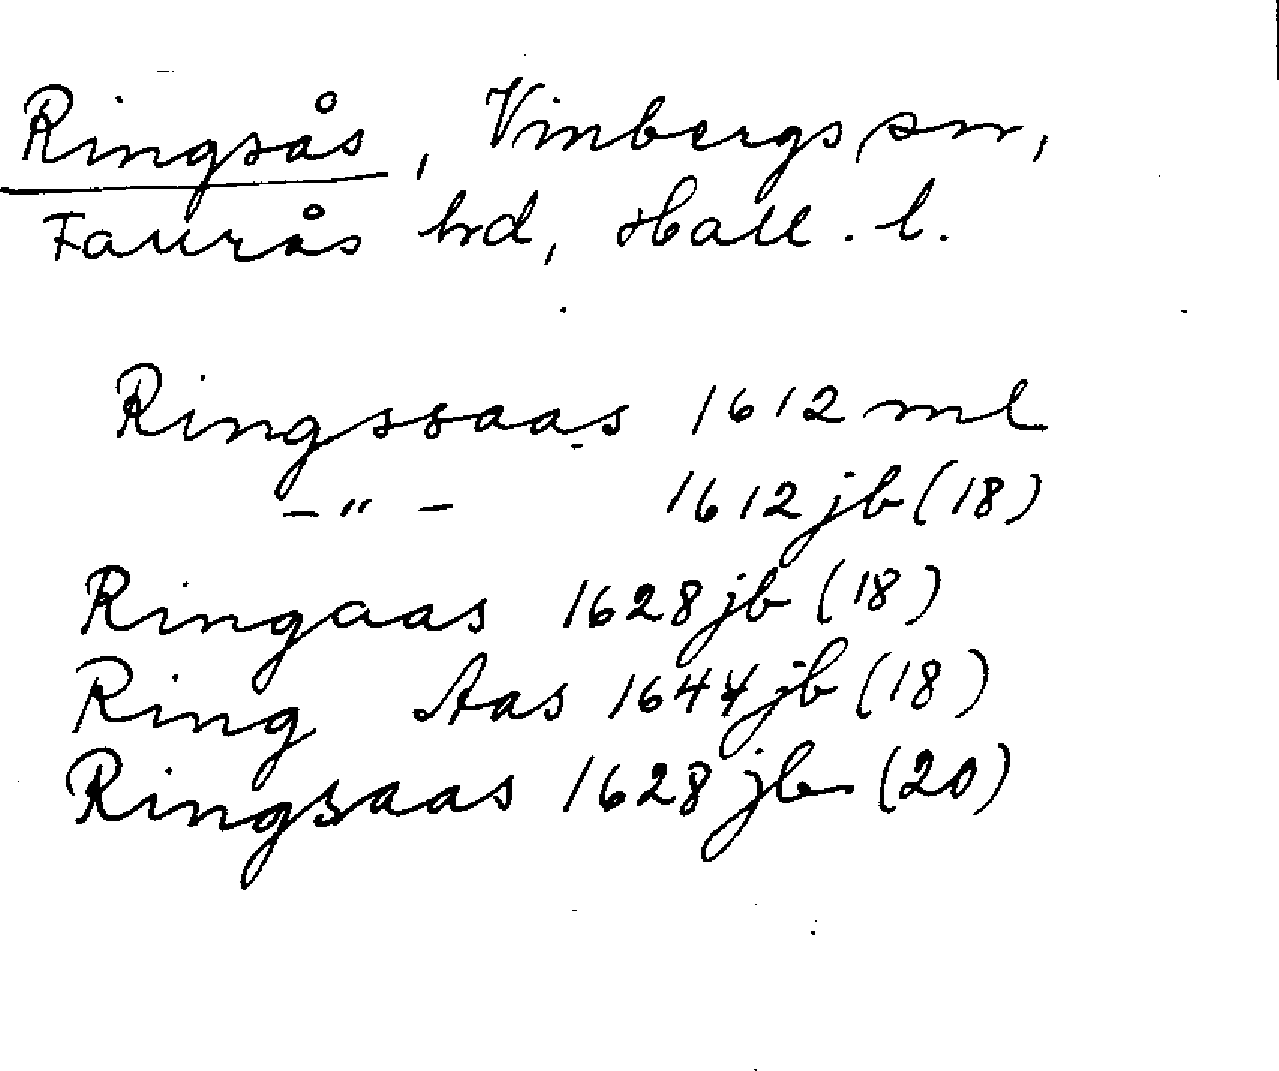 Ringsås, Vinbergs sn,
Faurås hd, Hall. l.
Ringssaas 1612 ml
-"- 1612 jb (18)
Ringaas 1628 jb (18)
Ring Aas 1644 jb (18)
Ringsaas 1628 jb (20)